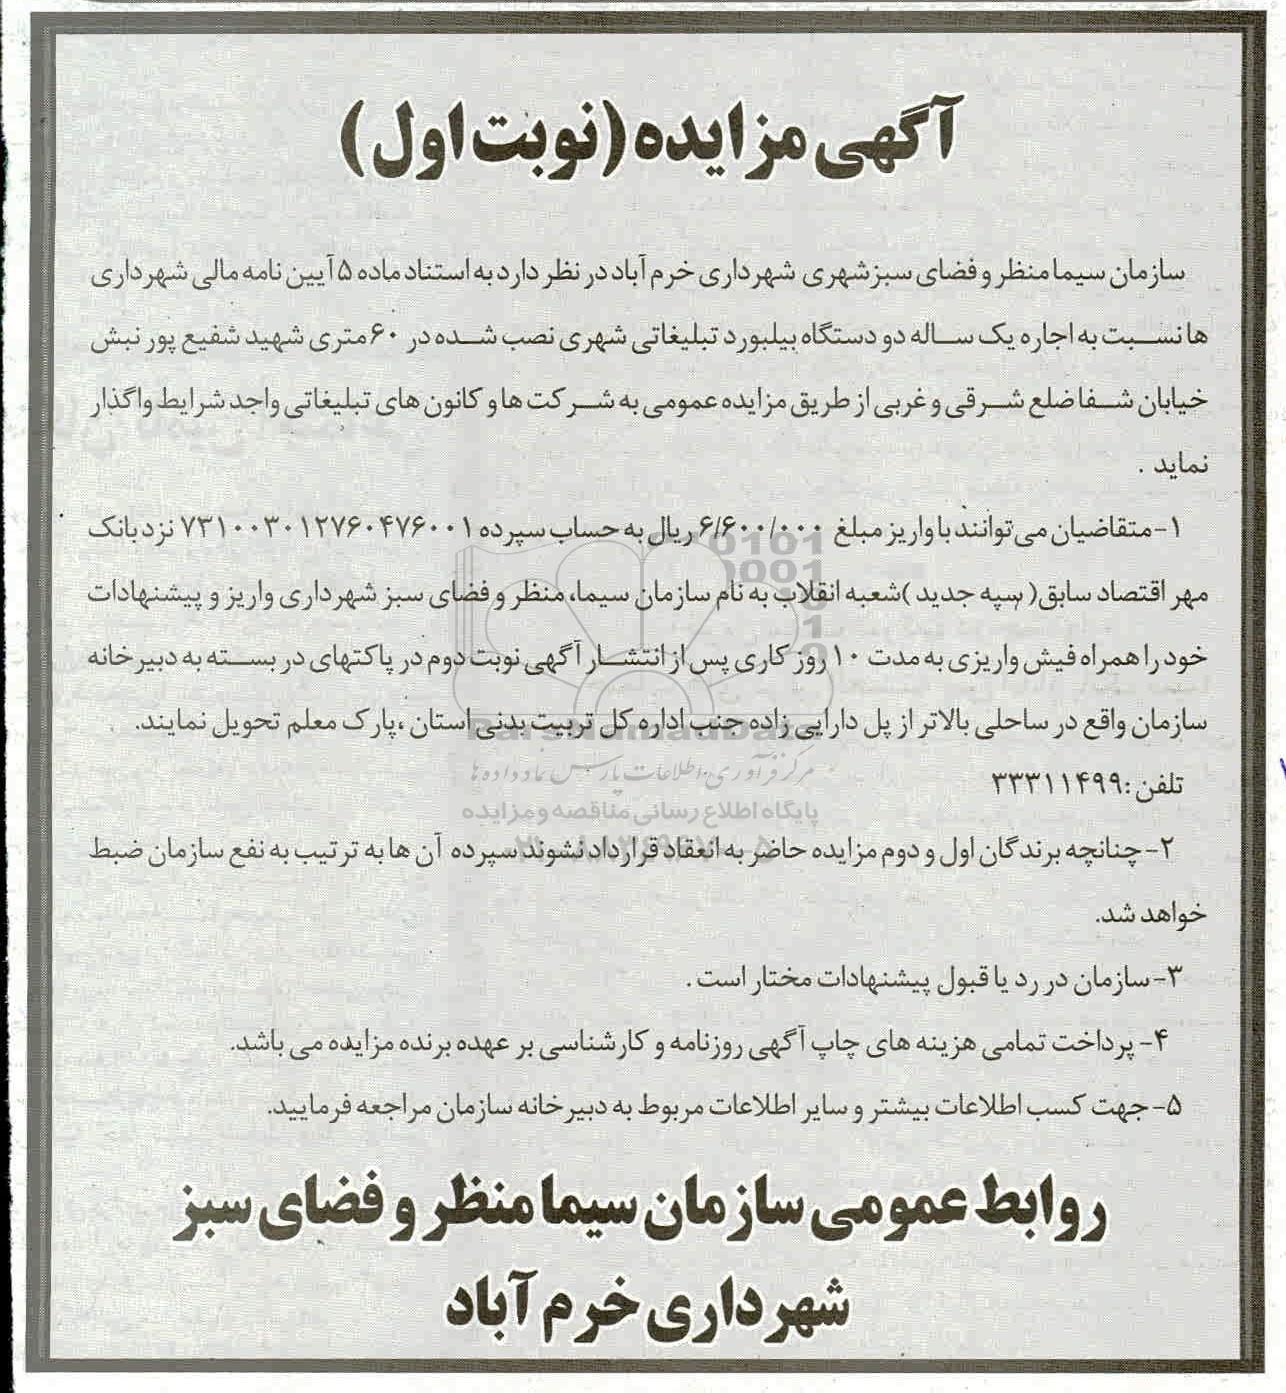 آگهی مزایده (نوبت اول)
سازمان سیما منظر و فضای سبز شهری شهرداری خرم آباد در نظر دارد به استناد ماده ۵ آیین نامه مالی شهرداری
ها نسبت به اجاره یک ساله دو دستگاه بیلبورد تبلیغاتی شهری نصب شده در ۶۰ متری شهید شفیع پور نبش
خیابان شفا ضلع شرقی و غربی از طریق مزایده عمومی به شرکت ها و کانون های تبلیغاتی واجد شرایط واگذار
نماید .
۱- متقاضیان می توانند با واریز مبلغ ۶/۶۰۰/۰۰۰ ریال به حساب سپرده ۷۳۱۰۰۳۰۱۲۷۶۰۴۷۶۰۰۱ نزد بانک
مهر اقتصاد سابق( سپه جدید )شعبه انقلاب به نام سازمان سیما، منظر و فضای سبز شهرداری واریز و پیشنهادات
خود را همراه فیش واریزی به مدت ۱۰ روز کاری پس از انتشار آگهی نوبت دوم در پاکتهای در بسته به دبیرخانه
سازمان واقع در ساحلی بالاتر از پل دارایی زاده جنب اداره کل تربیت بدنی استان ،پارک معلم تحویل نمایند.
تلفن :۳۳۳۱۱۴۹۹
۲- چنانچه برندگان اول و دوم مزایده حاضر به انعقاد قرارداد نشوند سپرده آن ها به ترتیب به نفع سازمان ضبط
خواهد شد.
۳- سازمان در رد یا قبول پیشنهادات مختار است .
۴- پرداخت تمامی هزینه های چاپ آگهی روزنامه و کارشناسی بر عهده برنده مزایده می باشد.
۵- جهت کسب اطلاعات بیشتر و سایر اطلاعات مربوط به دبیرخانه سازمان مراجعه فرمایید.
روابط عمومی سازمان سیما منظر و فضای سبز
شهرداری خرم آباد
مرکز فرآوری اطلاعات پارس نماد داده ها
پایگاه اطلاع رسانی مناقصه و مزایده